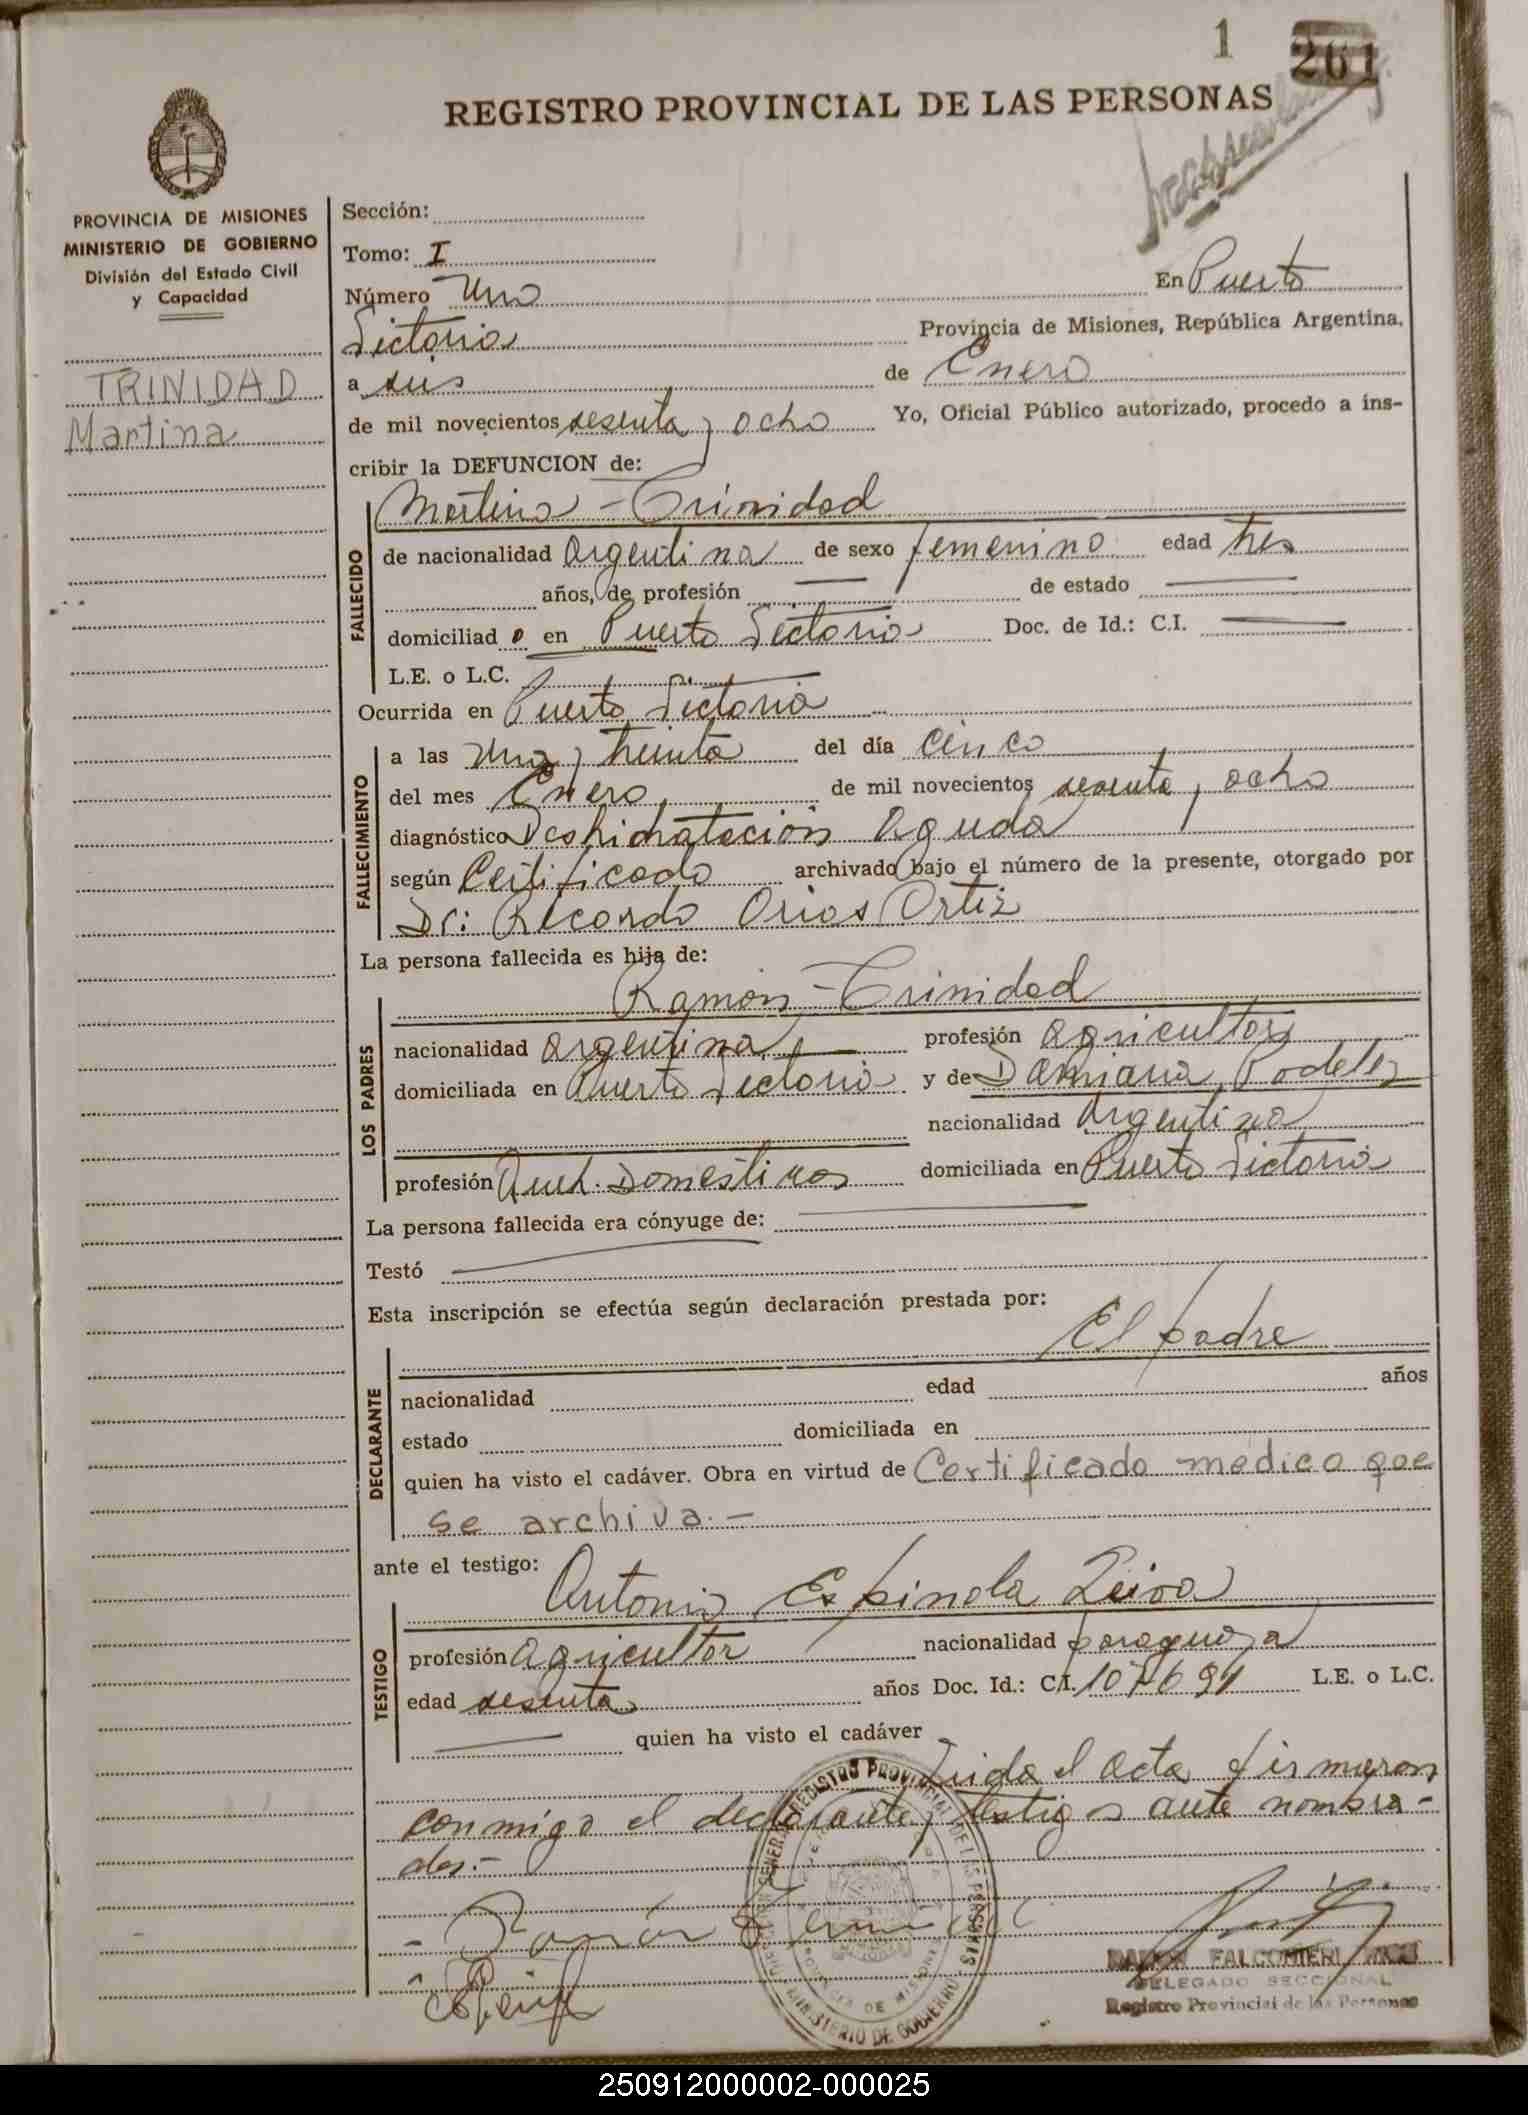 1 261
REGISTRO PROVINCIAL DE LAS PERSONAS
PROVINCIA DE MISIONES
MINISTERIO DE GOBIERNO
División del Estado Civil
y Capacidad
TRINIDAD
Martina
Sección:
Tomo: I
Número Uno En Puerto
Victoria Provincia de Misiones, República Argentina,
a seis de Enero
de mil novecientos sesenta y ocho Yo, Oficial Público autorizado, procedo a ins-
cribir la DEFUNCION de:
Martina - Trinidad
FALLECIDO
de nacionalidad Argentina de sexo femenino edad tres
años, de profesión — de estado —
domiciliad o en Puerto Victoria Doc. de Id.: C.I. —
L.E. o L.C.
Ocurrida en Puerto Victoria
FALLECIMIENTO
a las Una y treinta del día cinco
del mes Enero de mil novecientos sesenta y ocho
diagnóstico Deshidratación Aguda
según Certificado archivado bajo el número de la presente, otorgado por
Dr: Ricardo Orios Ortiz
La persona fallecida es hija de:
LOS PADRES
Ramón - Trinidad
nacionalidad Argentina profesión agricultor
domiciliada en Puerto Victoria y de Damiana
nacionalidad Argentina
profesión Domesticos domiciliada en Puerto Victoria
La persona fallecida era cónyuge de: —
Testó —
Esta inscripción se efectúa según declaración prestada por:
El padre
DECLARANTE
nacionalidad edad años
estado domiciliada en
quien ha visto el cadáver. Obra en virtud de Certificado medico que
se archiva.-
ante el testigo:
Antonio Espinola Leiva
TESTIGO
profesión agricultor nacionalidad paraguaya
edad sesenta años Doc. Id.: C.I. 107691 L.E. o L.C.
— quien ha visto el cadáver
Leida el acta firmaron
conmigo el declarante y testigo ante nombra-
dos.-
Ramón
REGISTRO PROVINCIAL DE LAS PERSONAS
MINISTERIO DE GOBIERNO
FALCONIERI
DELEGADO SECCIONAL
Registro Provincial de las Personas
250912000002-000025